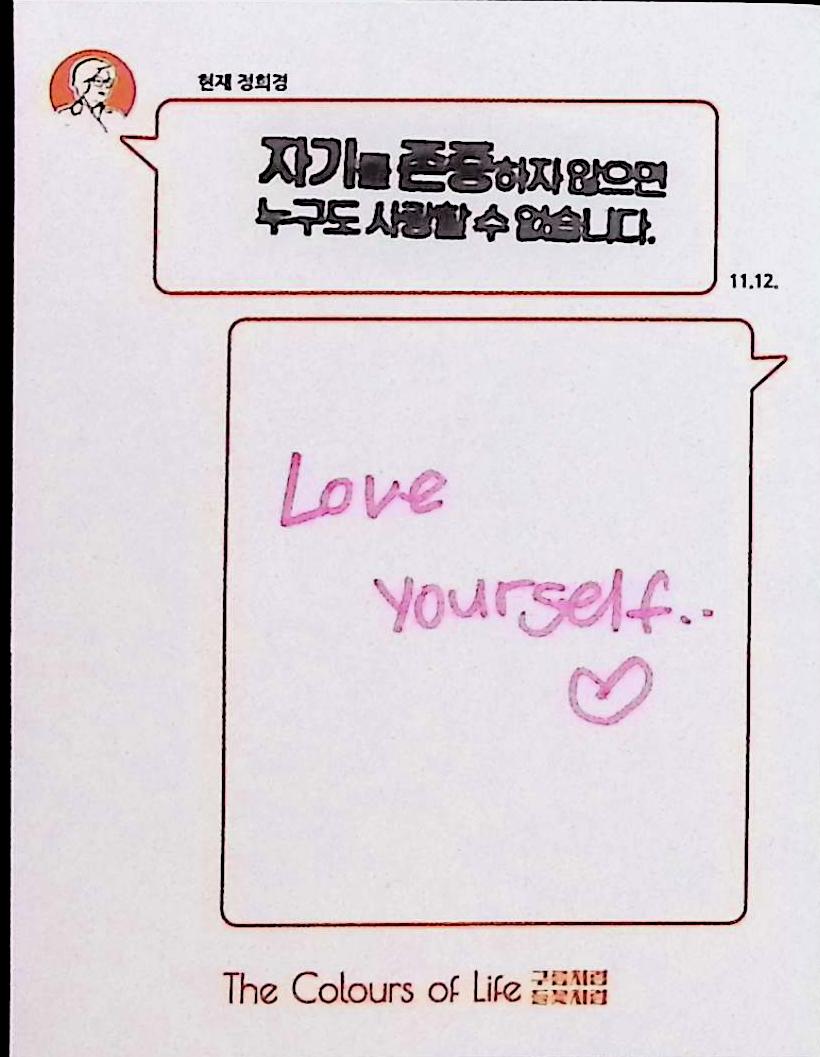 현재 정희경
자기를 존중하지 않으면
누구도 사랑할 수 없습니다.
11.12.
Love
yourself..
The Colours of Life 구름처럼
들꽃처럼